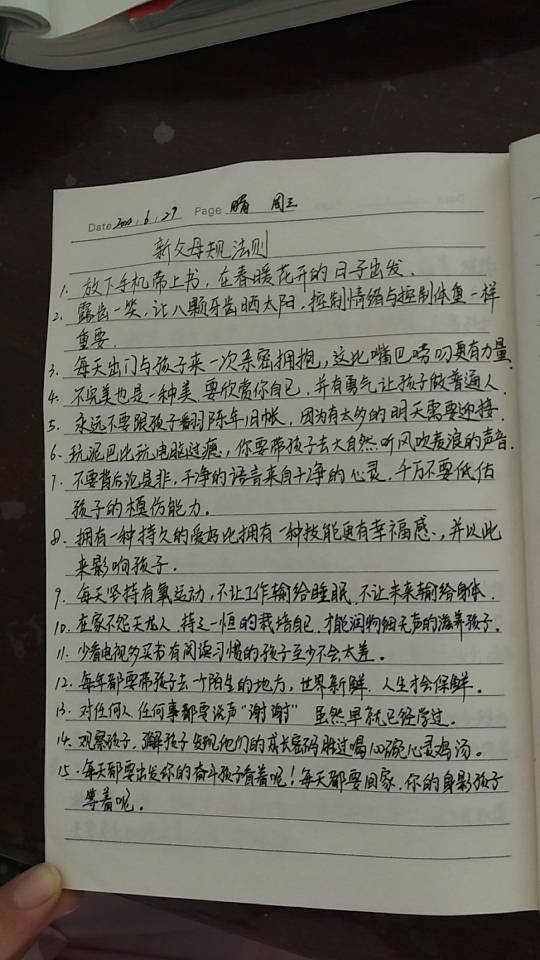 Date 2022.6.29 Page 晴 周三
新父母规法则
1. 放下手机带上书，在春暖花开的日子出发.
2. 露齿一笑，让八颗牙齿晒太阳，控制情绪与控制体重一样
重要.
3. 每天出门与孩子来一次亲密拥抱，这比嘴巴唠叨更有力量.
4. 不完美也是一种美 要欣赏你自己，并有勇气让孩子做普通人.
5. 永远不要跟孩子翻陈年旧帐，因为有太多的明天需要迎接.
6. 玩泥巴比玩电脑过瘾，你要带孩子去大自然听风吹麦浪的声音.
7. 不要背后论是非，干净的语言来自干净的心灵，千万不要低估
孩子的模仿能力.
8. 拥有一种持久的爱好比拥有一种技能更有幸福感，并以此
来影响孩子.
9. 每天坚持有氧运动，不让工作输给睡眠 不让未来输给身体.
10. 在家不怨天尤人，持之一恒的栽培自己，才能润物细无声的滋养孩子.
11. 少看电视多买书有阅读习惯的孩子至少不会太差.
12. 每年都要带孩子去一个陌生的地方，世界新鲜. 人生才会保鲜.
13. 对任何人任何事都要说声“谢谢” 虽然早就已经学过.
14. 观察孩子，了解孩子发现他们的成长密码胜过喝100碗心灵鸡汤.
15. 每天都要出发你的奋斗孩子看着呢！每天都要回家，你的身影孩子
等着呢.